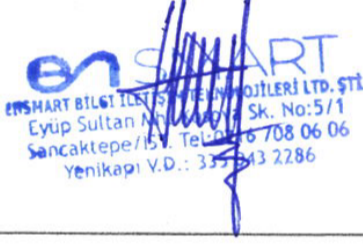 SMART
ENSMART BİLGİ İLETİŞİM TEKNOLOJİLERİ LTD. ŞTİ.
Eyüp Sultan Sk. No:5/1
Sancaktepe/İST. Tel: 6 708 06 06
Yenikapı V.D.: 33 43 2286